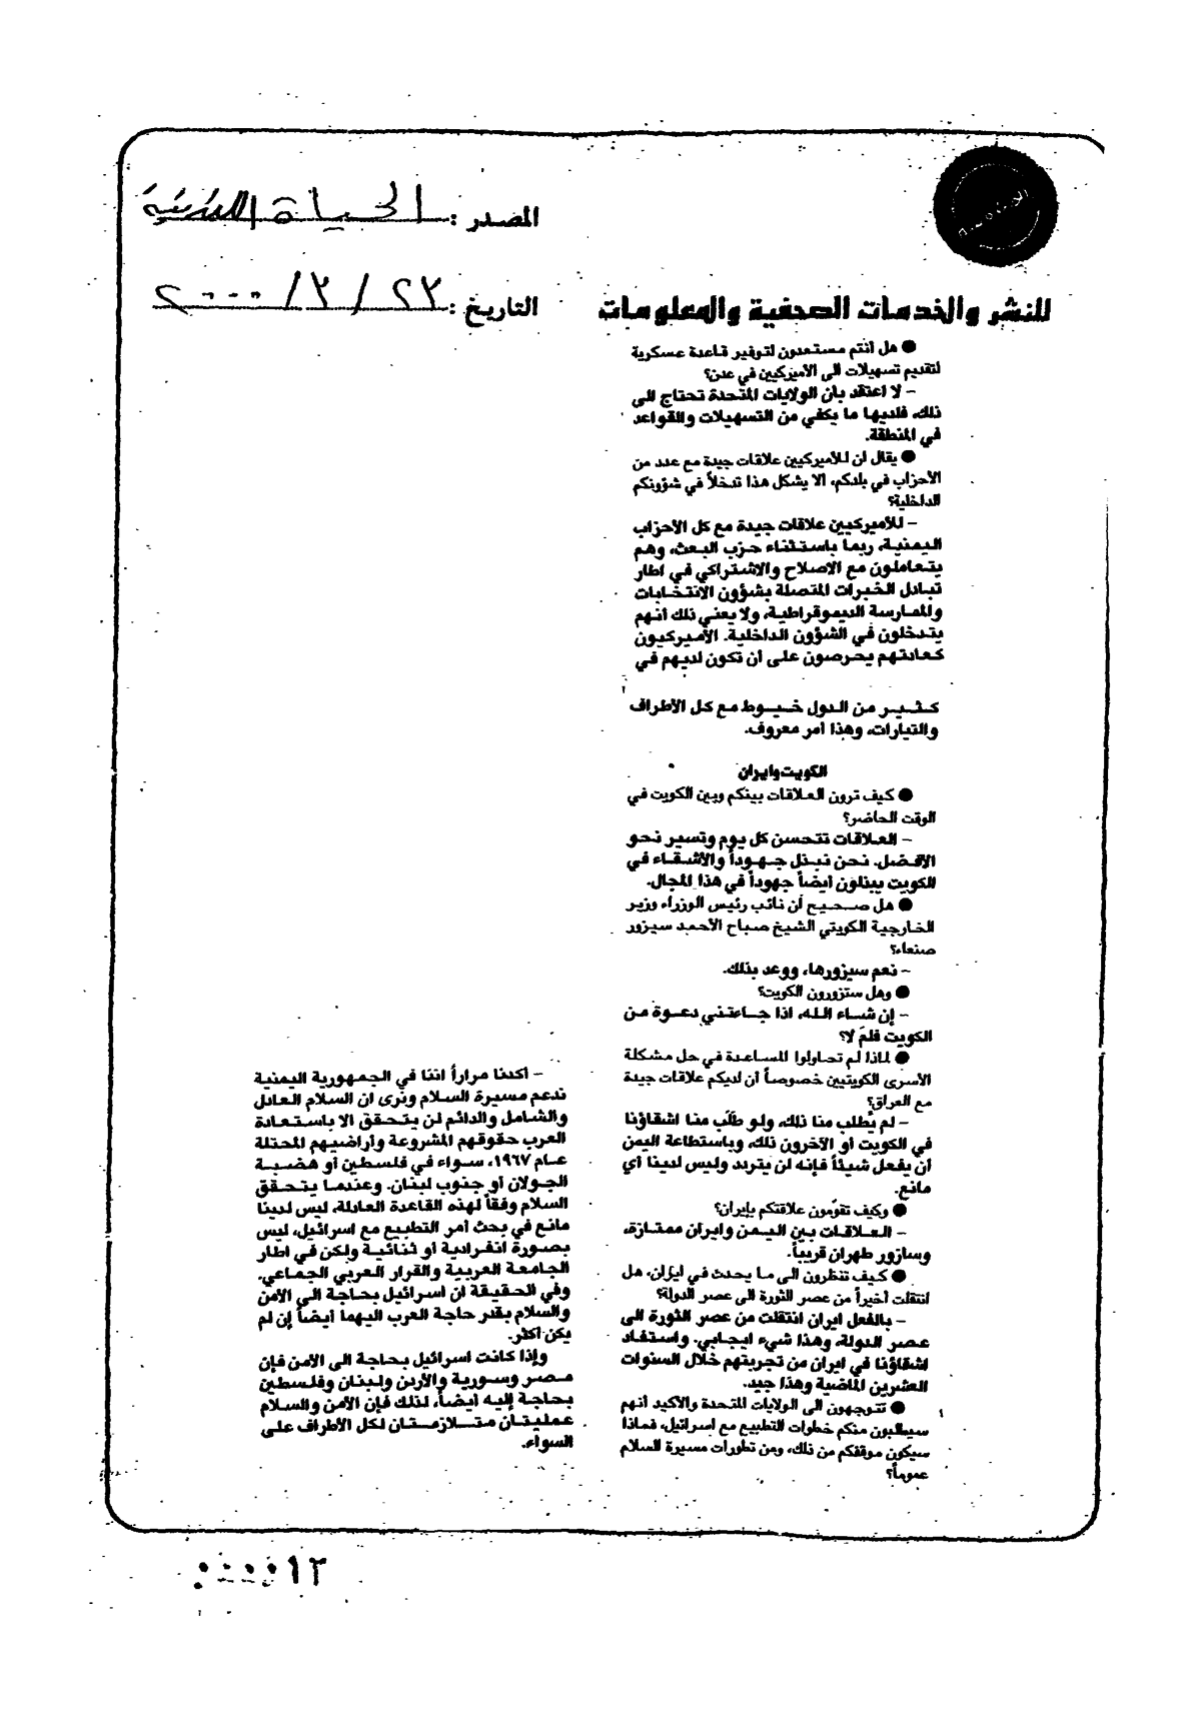 المصدر : الحياة اللندنية
التاريخ : ٢٣ / ٣ / ٢٠٠٠
للنشر والخدمات الصحفية والمعلومات
● هل أنتم مستعدون لتوفير قاعدة عسكرية
لتقديم تسهيلات الى الأميركيين في عدن؟
- لا اعتقد بأن الولايات المتحدة تحتاج الى
ذلك، فلديها ما يكفي من التسهيلات والقواعد
في المنطقة.
● يقال ان للأميركيين علاقات جيدة مع عدد من
الأحزاب في بلدكم، الا يشكل هذا تدخلاً في شؤونكم
الداخلية؟
- للأميركيين علاقات جيدة مع كل الأحزاب
اليمنية، ربما باستثناء حزب البعث، وهم
يتعاملون مع الاصلاح والاشتراكي في اطار
تبادل الخبرات المتصلة بشؤون الانتخابات
والممارسة الديموقراطية، ولا يعني ذلك أنهم
يتدخلون في الشؤون الداخلية. الأميركيون
كعادتهم يحرصون على أن تكون لديهم في
كثير من الدول خيوط مع كل الأطراف
والتيارات، وهذا أمر معروف.
الكويت وايران
● كيف ترون العلاقات بينكم وبين الكويت في
الوقت الحاضر؟
- العلاقات تتحسن كل يوم وتسير نحو
الأفضل. نحن نبذل جهوداً والأشقاء في
الكويت يبذلون أيضاً جهوداً في هذا المجال.
● هل صحيح أن نائب رئيس الوزراء وزير
الخارجية الكويتي الشيخ صباح الأحمد سيزور
صنعاء؟
- نعم سيزورها، ووعد بذلك.
● وهل ستزورون الكويت؟
- إن شاء الله، اذا جاءتني دعوة من
الكويت فلمَ لا؟
● لماذا لم تحاولوا المساعدة في حل مشكلة
الأسرى الكويتيين خصوصاً أن لديكم علاقات جيدة
مع العراق؟
- لم يُطلب منا ذلك، ولو طلَب منا اشقاؤنا
في الكويت أو الآخرون ذلك، وباستطاعة اليمن
أن يفعل شيئاً فإنه لن يتردد وليس لدينا أي
مانع.
● وكيف تقوّمون علاقتكم بإيران؟
- العلاقات بين اليمن وايران ممتازة،
وسأزور طهران قريباً.
● كيف تنظرون الى ما يحدث في ايران، هل
انتقلت أخيراً من عصر الثورة الى عصر الدولة؟
- بالفعل ايران انتقلت من عصر الثورة الى
عصر الدولة، وهذا شيء ايجابي. واستفاد
اشقاؤنا في ايران من تجربتهم خلال السنوات
العشرين الماضية وهذا جيد.
● تتوجهون الى الولايات المتحدة والأكيد أنهم
سيطلبون منكم خطوات التطبيع مع اسرائيل، فماذا
سيكون موقفكم من ذلك، ومن تطورات مسيرة السلام
عموماً؟
- أكدنا مراراً اننا في الجمهورية اليمنية
ندعم مسيرة السلام ونرى ان السلام العادل
والشامل والدائم لن يتحقق الا باستعادة
العرب حقوقهم المشروعة وأراضيهم المحتلة
عام ١٩٦٧، سواء في فلسطين أو هضبة
الجولان أو جنوب لبنان. وعندما يتحقق
السلام وفقاً لهذه القاعدة العادلة، ليس لدينا
مانع في بحث أمر التطبيع مع اسرائيل، ليس
بصورة انفرادية أو ثنائية ولكن في اطار
الجامعة العربية والقرار العربي الجماعي.
وفي الحقيقة ان اسرائيل بحاجة الى الأمن
والسلام بقدر حاجة العرب اليهما أيضاً إن لم
يكن أكثر.
وإذا كانت اسرائيل بحاجة الى الأمن فإن
مصر وسورية والأردن ولبنان وفلسطين
بحاجة إليه أيضاً، لذلك فإن الأمن والسلام
عمليتان متلازمتان لكل الأطراف على
السواء.